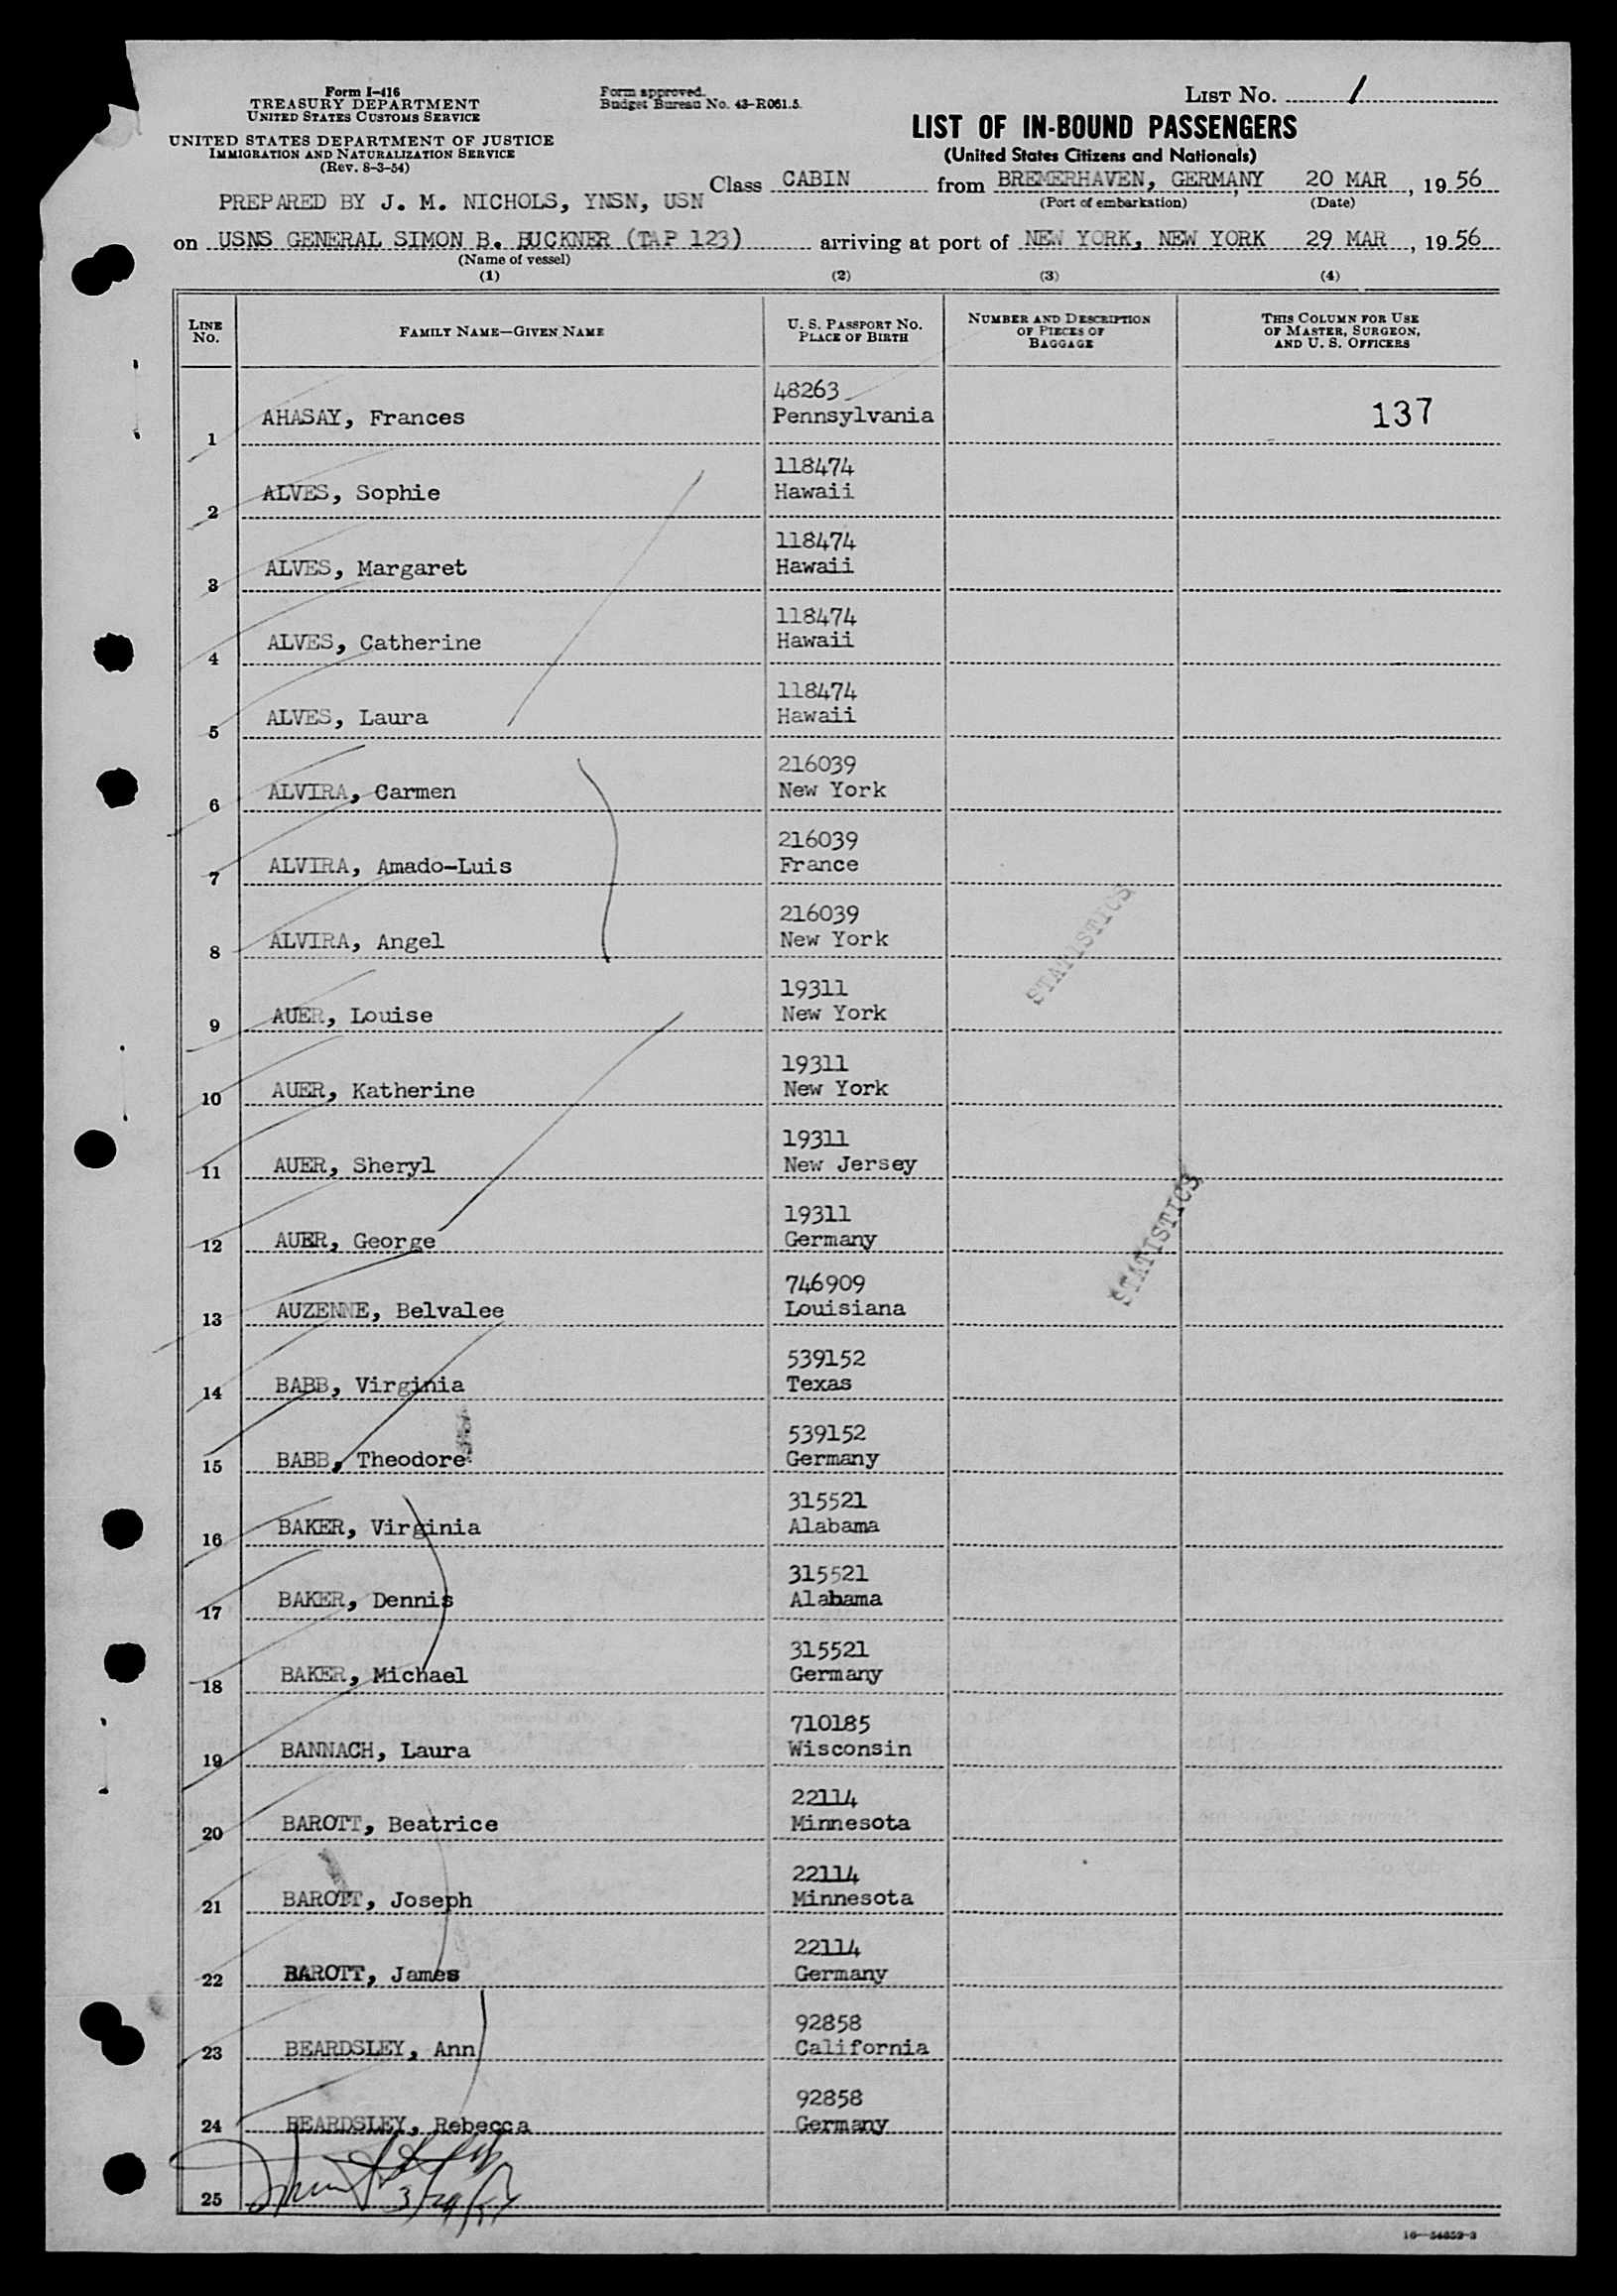 Form I-416
TREASURY DEPARTMENT
UNITED STATES CUSTOMS SERVICE
UNITED STATES DEPARTMENT OF JUSTICE
IMMIGRATION AND NATURALIZATION SERVICE
(Rev. 8-3-54)
Form approved.
Budget Bureau No. 43-R061.5.
LIST NO. 1
LIST OF IN-BOUND PASSENGERS
(United States Citizens and Nationals)
Class CABIN from BREMERHAVEN, GERMANY, 20 MAR, 1956
(Port of embarkation) (Date)
PREPARED BY J. M. NICHOLS, YNSN, USN
on USNS GENERAL SIMON B. BUCKNER (TAP 123) arriving at port of NEW YORK, NEW YORK 29 MAR, 1956
(Name of vessel)
(1) (2) (3) (4)
LINE NO. FAMILY NAME—GIVEN NAME U. S. PASSPORT NO. PLACE OF BIRTH NUMBER AND DESCRIPTION OF PIECES OF BAGGAGE THIS COLUMN FOR USE OF MASTER, SURGEON, AND U. S. OFFICERS
48263
1 AHASAY, Frances Pennsylvania 137
118474
2 ALVES, Sophie Hawaii
118474
3 ALVES, Margaret Hawaii
118474
4 ALVES, Catherine Hawaii
118474
5 ALVES, Laura Hawaii
216039
6 ALVIRA, Carmen New York
216039
7 ALVIRA, Amado-Luis France
216039
8 ALVIRA, Angel New York
STATISTICS
19311
9 AUER, Louise New York
19311
10 AUER, Katherine New York
19311
11 AUER, Sheryl New Jersey
19311
12 AUER, George Germany
STATISTICS
746909
13 AUZENNE, Belvalee Louisiana
539152
14 BABB, Virginia Texas
539152
15 BABB, Theodore Germany
315521
16 BAKER, Virginia Alabama
315521
17 BAKER, Dennis Alabama
315521
18 BAKER, Michael Germany
710185
19 BANNACH, Laura Wisconsin
22114
20 BAROTT, Beatrice Minnesota
22114
21 BAROTT, Joseph Minnesota
22114
22 BAROTT, James Germany
92858
23 BEARDSLEY, Ann California
92858
24 BEARDSLEY, Rebecca Germany
25
16—54652-3